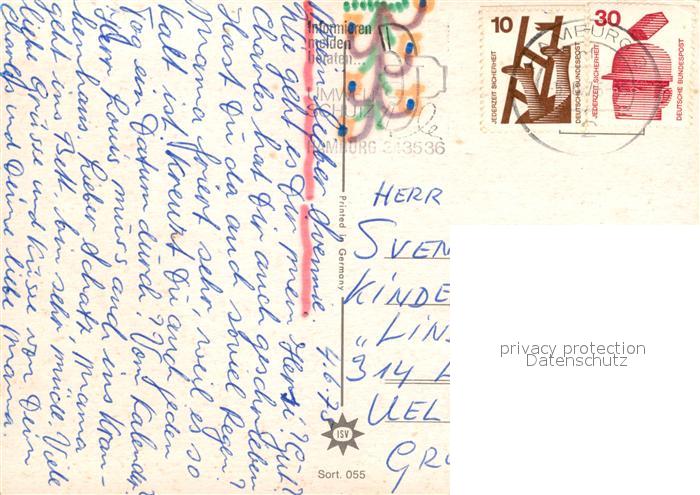 4.6.73
Lieber Svennie.
Wie geht es Dir mein Herzi? Gut?
Charles hat Dir auch geschrieben
Hast Du da auch soviel Regen?
Mama friert sehr, weil es so
kalt ist. Kreuzt Du auch jeden
Tag Datum durch? Vom Kalender.
Herr Pons muss auch ins Kran-
kenhaus. Lieber Schatz, Mama
geht ins Bett bin sehr müde. Viele
liebe Grüsse und Küsse von Dein
und Deine liebe Mama.
Informieren
melden
beraten...
HAMBURG 343536
10
JEDERZEIT SICHERHEIT
DEUTSCHE BUNDESPOST
30
JEDERZEIT SICHERHEIT
DEUTSCHE BUNDESPOST
HAMBURG
Printed in Germany
HERR
SVEN
KINDE
"LIN
314
UEL
GR
ISV
Sort. 055
privacy protection
Datenschutz